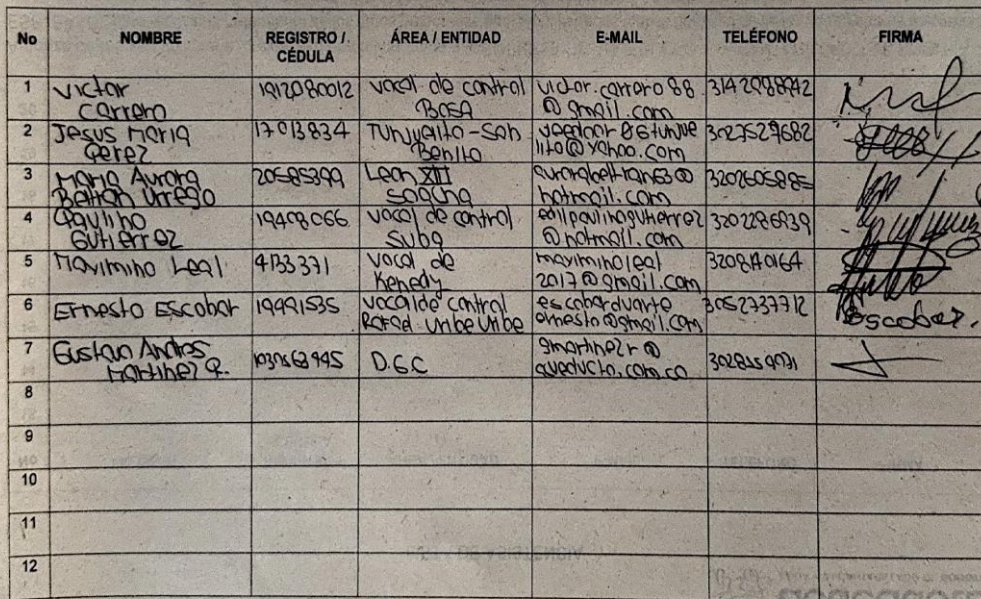 No NOMBRE REGISTRO / CÉDULA ÁREA / ENTIDAD E-MAIL TELÉFONO FIRMA
1 Victor Carrero 1912080012 vocal de control Bosa victor.carrero88@gmail.com 3142988942
2 Jesus Maria Perez 17013834 Tunjuelito-San Benito veedor06tunjuelito@yahoo.com 3027529682
3 Maria Aurora Beltran Urrego 20585399 Leon XIII soacha aurorabeltran63@hotmail.com 3202605885
4 Paulino Gutierrez 19408066 vocal de control suba edilpaulinogutierrez@hotmail.com 3202286939
5 Maximino Leal 4133371 vocal de Kenedy maximinoleal2017@gmail.com 3208140164
6 Ernesto Escobar 19491535 vocal de control Rafael Uribe Uribe escobarduarteernesto@gmail.com 3052737712 Escobar.
7 Gustavo Andres Martinez R. D.G.C gmartinezr@acueducto.com.co
8
9
10
11
12